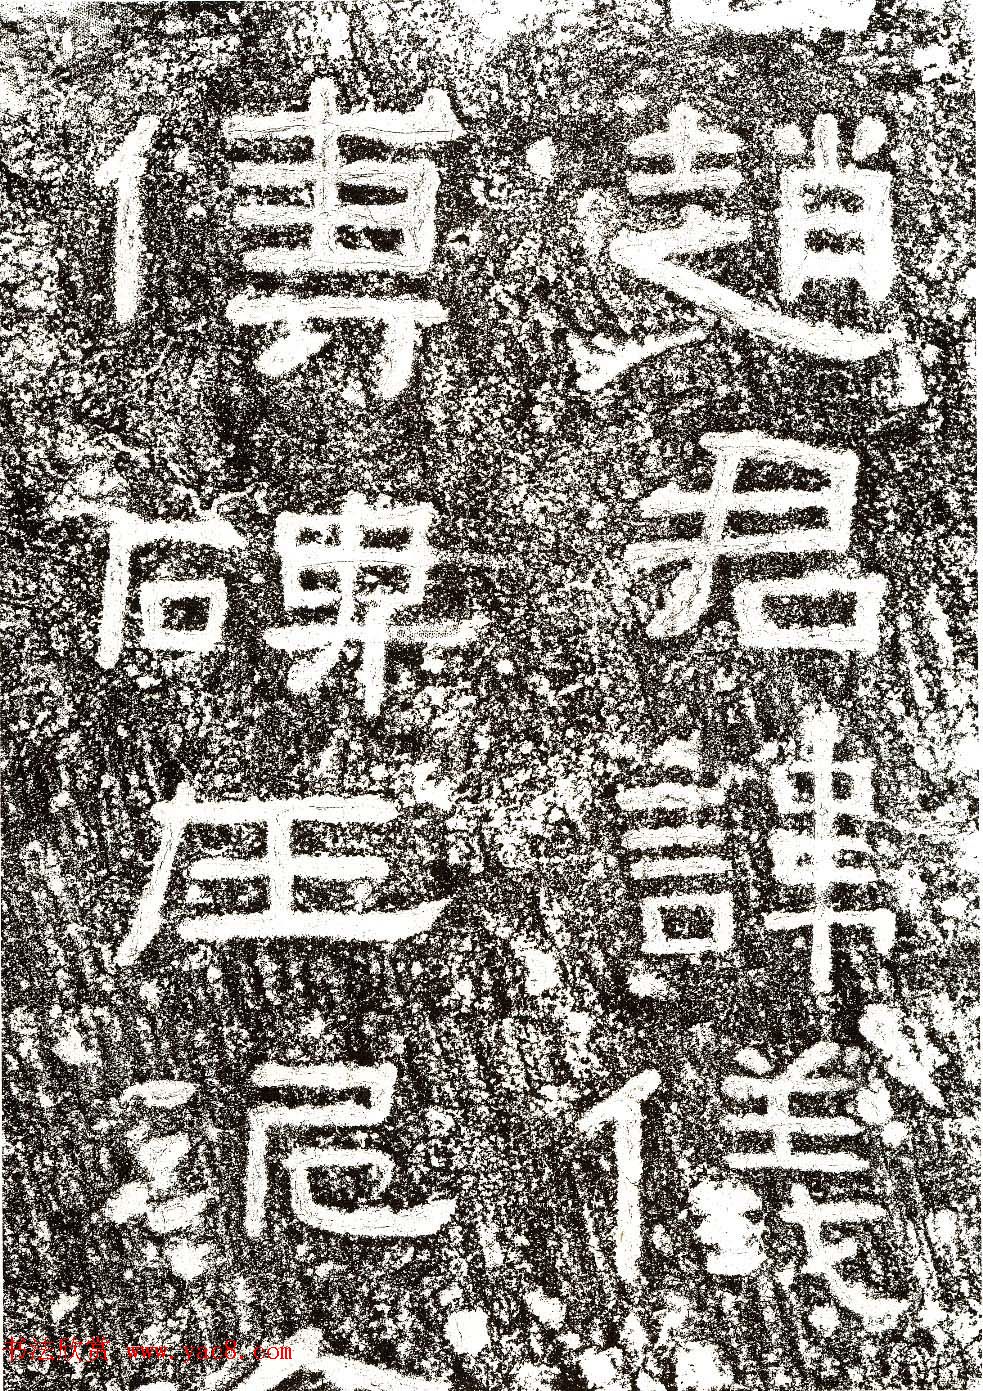 趙君諱儀
傳碑在
书法欣赏 www.yac8.com